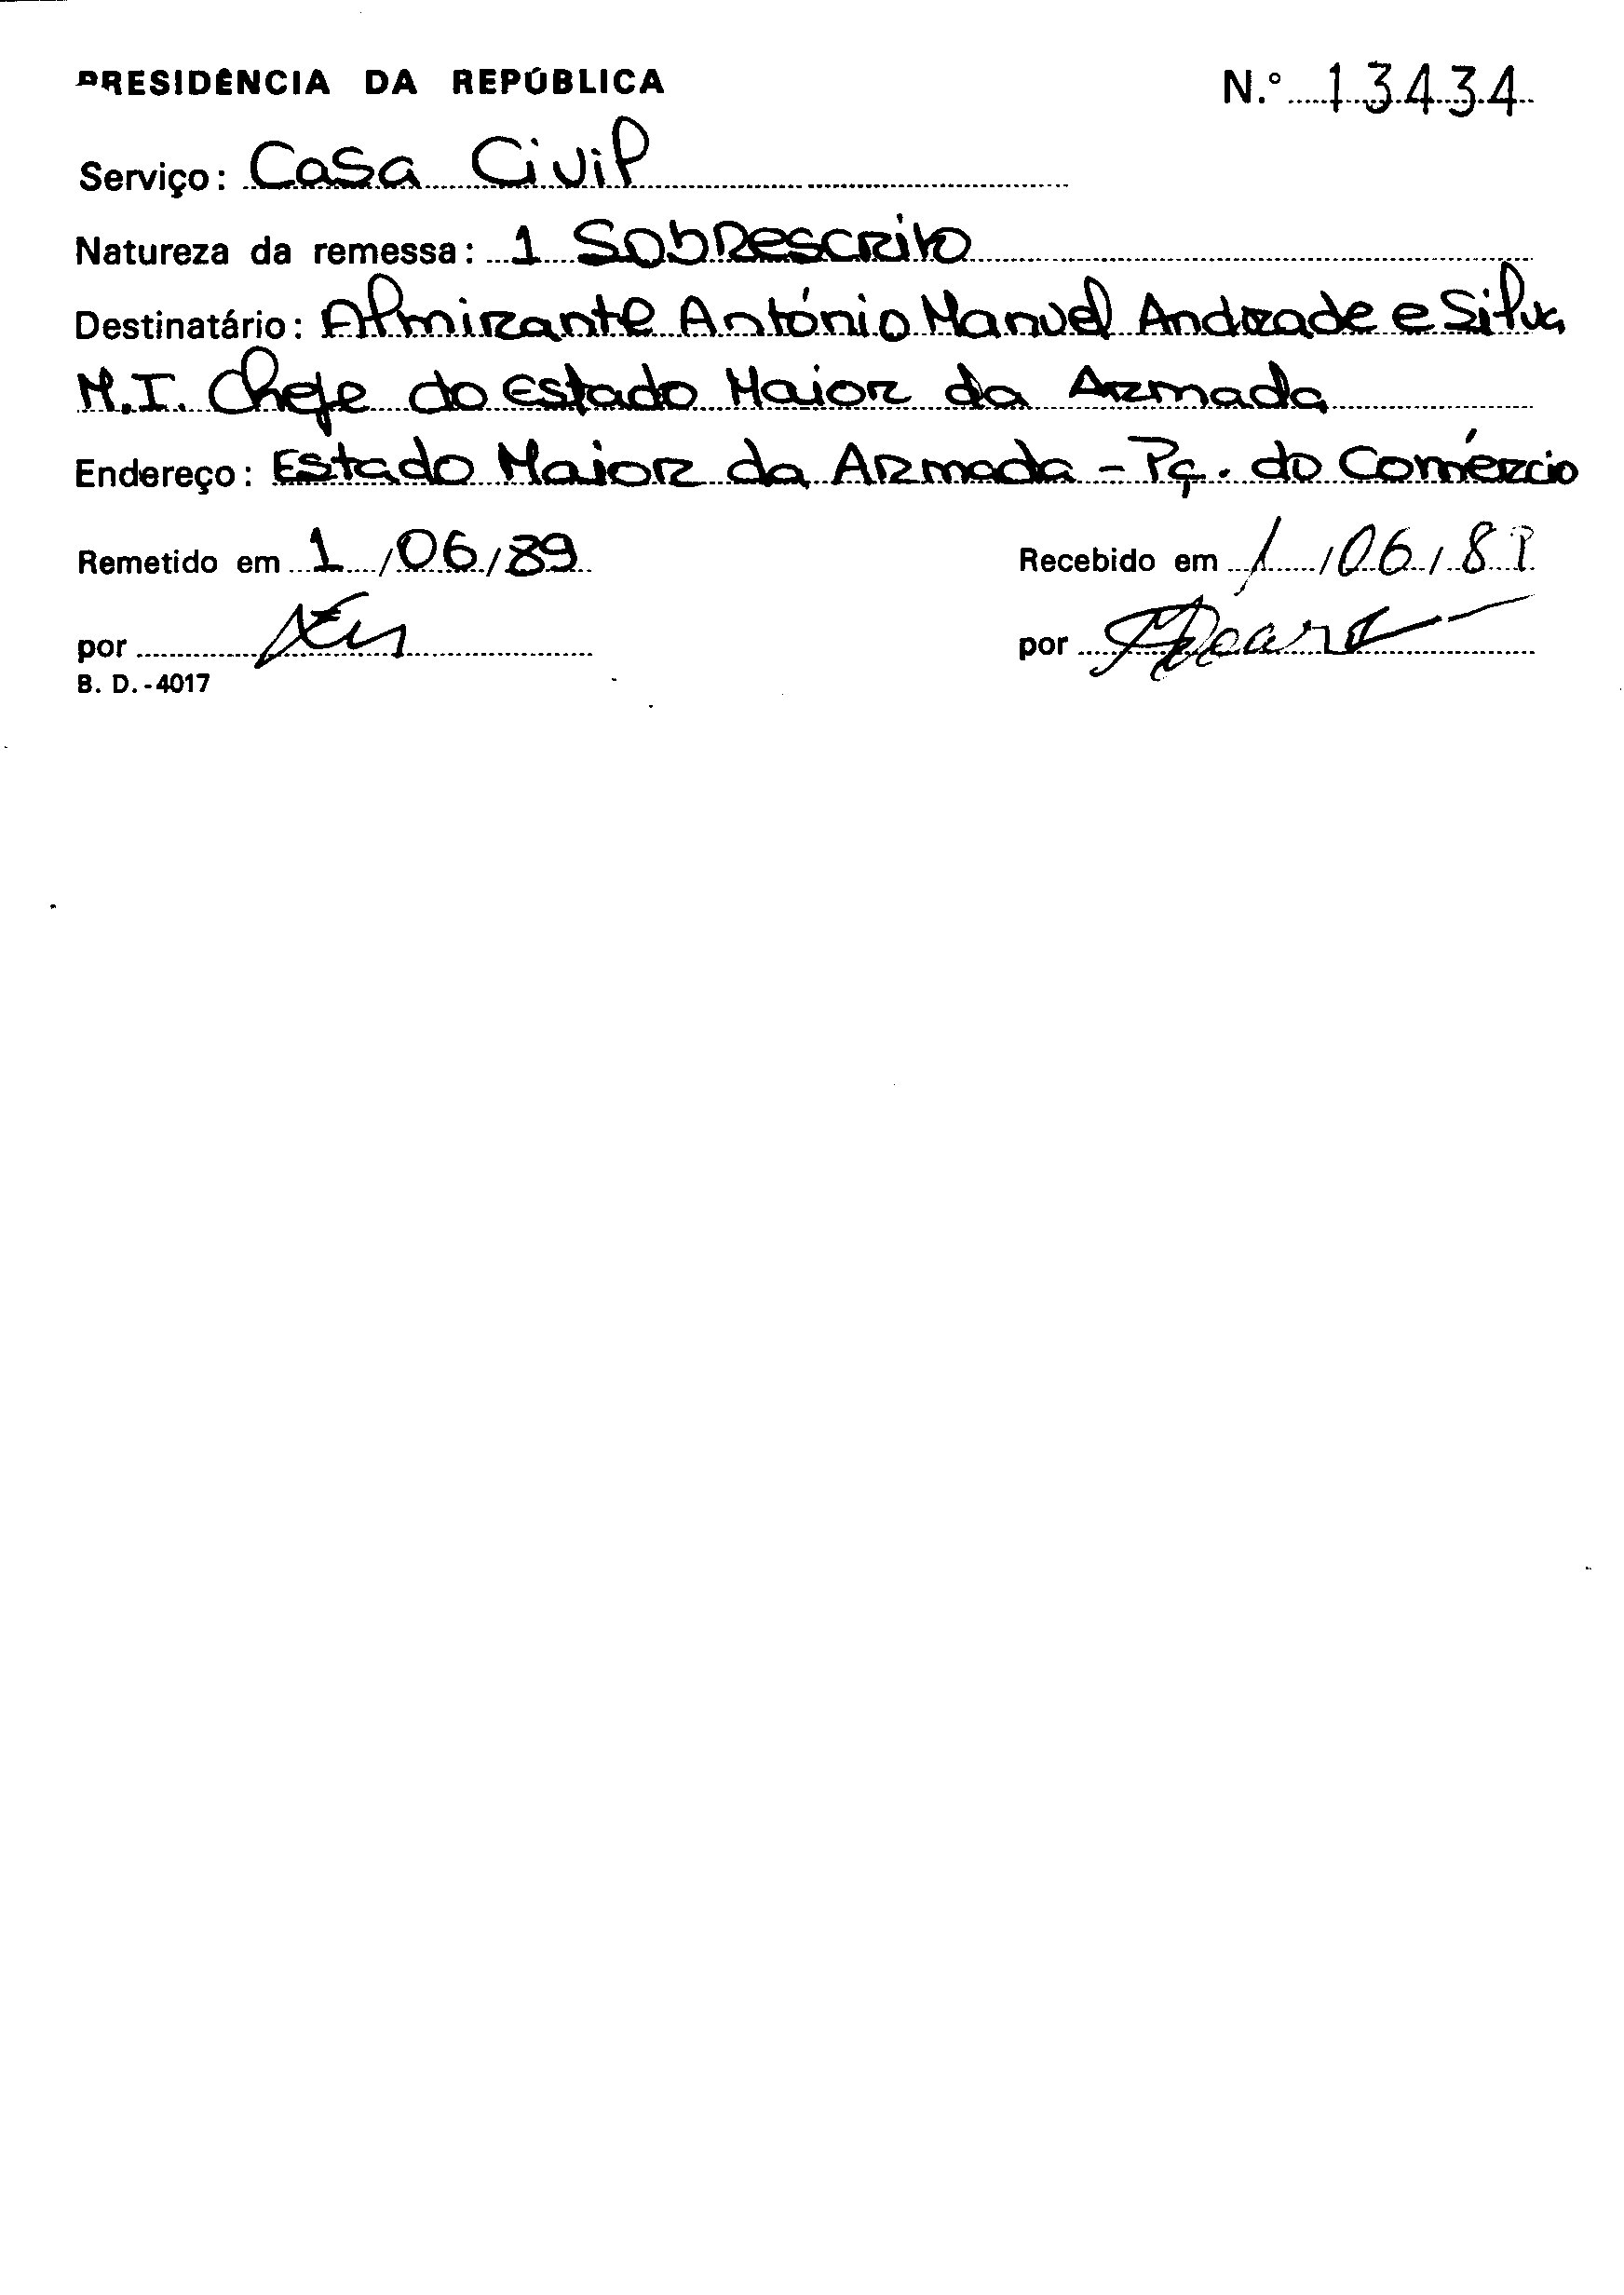 PRESIDÊNCIA DA REPÚBLICA N.º 13434
Serviço: Casa Civil
Natureza da remessa: 1 Sobrescrito
Destinatário: Almirante António Manuel Andrade e Silva
M.I. Chefe do Estado Maior da Armada
Endereço: Estado Maior da Armada - Pç. do Comércio
Remetido em 1/06/89 Recebido em 1/06/89
por por
B. D. - 4017